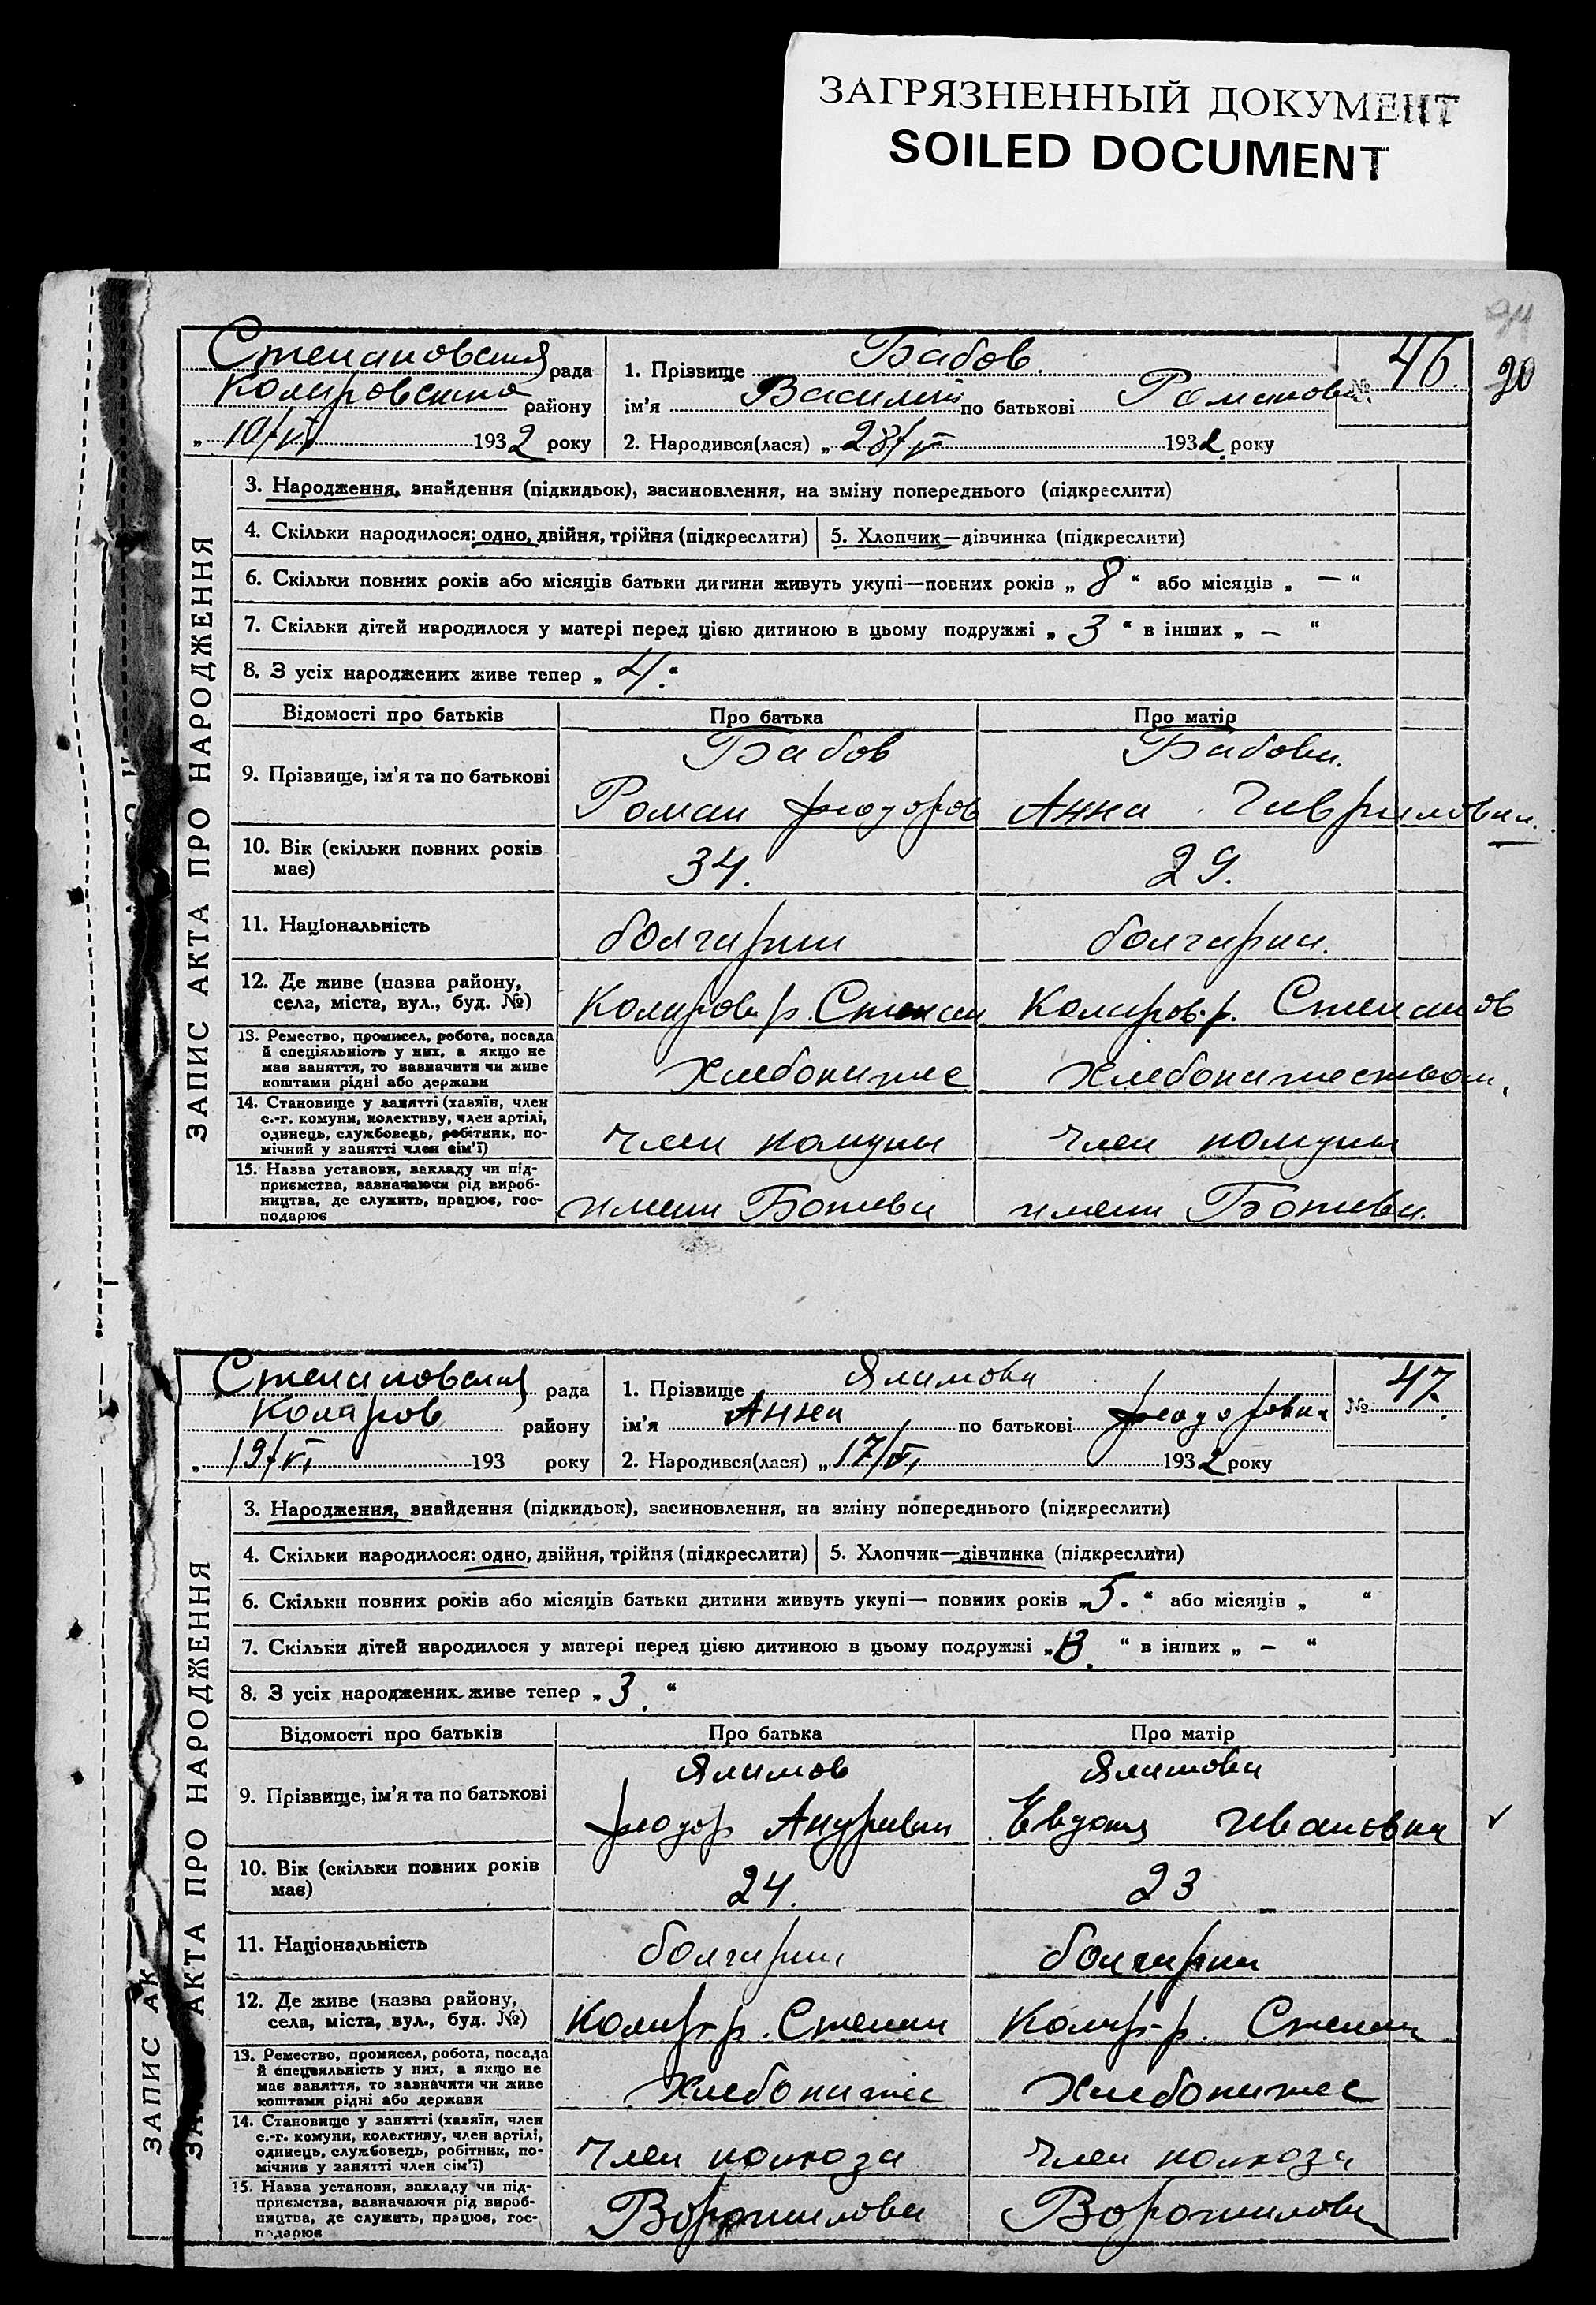 ЗАГРЯЗНЕННЫЙ ДОКУМЕНТ
SOILED DOCUMENT
94
20
Степановская рада
Коларовского району
„ 10/VI 1932 року
1. Прізвище Бабов.
ім'я Василий по батькові Романович
№ 46.
2. Народився(лася) „ 28/V 1932 року
ЗАПИС АКТА ПРО НАРОДЖЕННЯ
3. Народження, знайдення (підкидьок), засиновлення, на зміну попереднього (підкреслити)
4. Скільки народилося: одно, двійня, трійня (підкреслити)
5. Хлопчик—дівчинка (підкреслити)
6. Скільки повних років або місяців батьки дитини живуть укупі—повних років „ 8 “ або місяців „ — “
7. Скільки дітей народилося у матері перед цією дитиною в цьому подружжі „ 3 “ в інших „ — “
8. З усіх народжених живе тепер „ 4. “
Відомості про батьків Про батька Про матір
Бабов Бабова.
9. Прізвище, ім'я та по батькові
Роман Феодоров Анна Гавриловна.
10. Вік (скільки повних років
має)
34. 29.
11. Національність
болгарин болгарка.
12. Де живе (назва району,
села, міста, вул., буд. №)
Коларов. р. Степан Коларов. р. Степанов
13. Ремество, промисел, робота, посада
й спеціяльність у них, а якщо не
має заняття, то зазначити чи живе
коштами рідні або держави
Хлебопашес Хлебопашеством.
14. Становище у занятті (хазяїн, член
с.-г. комуни, колективу, член артілі,
одинець, службовець, робітник, по-
мічний у занятті член сім'ї)
член комуны член комуны
15. Назва установи, закладу чи під-
приємства, зазначаючи рід вироб-
ництва, де служить, працює, гос-
подарює
имени Ботева имени Ботева.
Степановская рада
Коларов району
„ 19/VI 193 року
1. Прізвище Ялимова
ім'я Анна по батькові Феодоровна
№ 47.
2. Народився(лася) „ 17/VI, 1932 року
ЗАПИС АКТА ПРО НАРОДЖЕННЯ
ЗАПИС АК
3. Народження, знайдення (підкидьок), засиновлення, на зміну попереднього (підкреслити)
4. Скільки народилося: одно, двійня, трійня (підкреслити)
5. Хлопчик—дівчинка (підкреслити)
6. Скільки повних років або місяців батьки дитини живуть укупі— повних років „ 5. “ або місяців „ “
7. Скільки дітей народилося у матері перед цією дитиною в цьому подружжі „ “ в інших „ — “
8. З усіх народжених живе тепер „ 3. “
Відомості про батьків Про батька Про матір
Ялимов Ялимова
9. Прізвище, ім'я та по батькові
Феодор Андреевич Евдокия Ивановна
10. Вік (скільки повних років
має)
24. 23
11. Національність
болгарин болгарка
12. Де живе (назва району,
села, міста, вул., буд. №)
Колар. р. Степан Колар. р. Степан
13. Ремество, промисел, робота, посада
й спеціяльність у них, а якщо не
має заняття, то зазначити чи живе
коштами рідні або держави
Хлебопашес Хлебопашес
14. Становище у занятті (хазяїн, член
с.-г. комуни, колективу, член артілі,
одинець, службовець, робітник, по-
мічний у занятті член сім'ї)
член колхоза член колхоза
15. Назва установи, закладу чи під-
приємства, зазначаючи рід вироб-
ництва, де служить, працює, гос-
подарює
Ворошилова Ворошилова